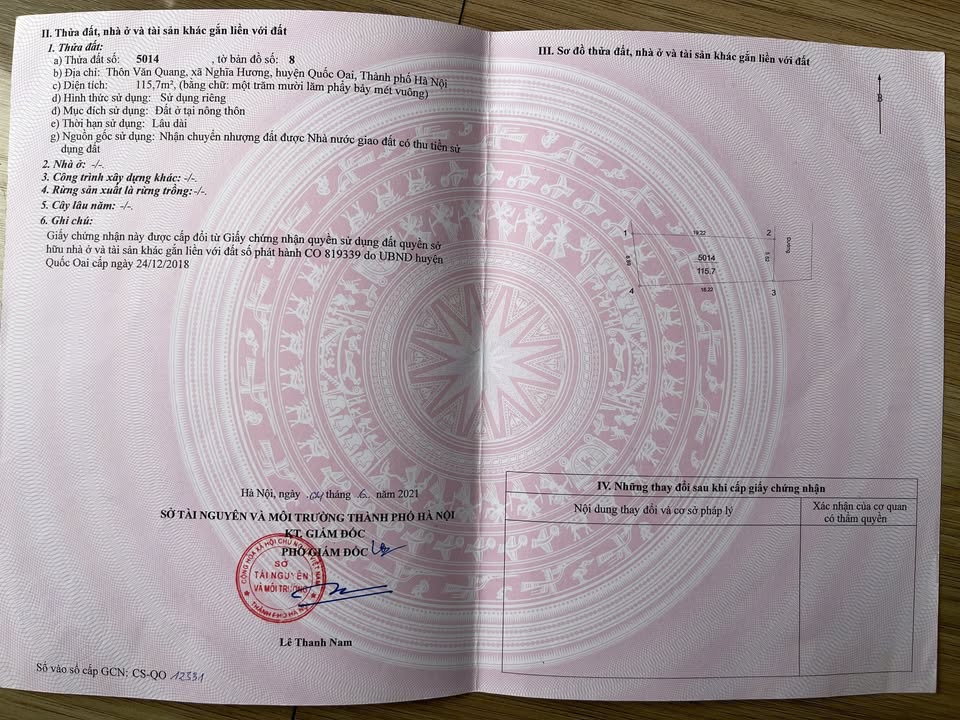 II. Thửa đất, nhà ở và tài sản khác gắn liền với đất
1. Thửa đất:
a) Thửa đất số: 5014 , tờ bản đồ số: 8
b) Địa chỉ: Thôn Văn Quang, xã Nghĩa Hương, huyện Quốc Oai, Thành phố Hà Nội
c) Diện tích: 115,7m², (bằng chữ: một trăm mười lăm phẩy bảy mét vuông)
d) Hình thức sử dụng: Sử dụng riêng
đ) Mục đích sử dụng: Đất ở tại nông thôn
e) Thời hạn sử dụng: Lâu dài
g) Nguồn gốc sử dụng: Nhận chuyển nhượng đất được Nhà nước giao đất có thu tiền sử
dụng đất
2. Nhà ở: -/-.
3. Công trình xây dựng khác: -/-.
4. Rừng sản xuất là rừng trồng:-/-.
5. Cây lâu năm: -/-.
6. Ghi chú:
Giấy chứng nhận này được cấp đổi từ Giấy chứng nhận quyền sử dụng đất quyền sở
hữu nhà ở và tài sản khác gắn liền với đất số phát hành CO 819339 do UBND huyện
Quốc Oai cấp ngày 24/12/2018
Hà Nội, ngày 04 tháng 6 năm 2021
SỞ TÀI NGUYÊN VÀ MÔI TRƯỜNG THÀNH PHỐ HÀ NỘI
KT. GIÁM ĐỐC
PHÓ GIÁM ĐỐC
CỘNG HÒA XÃ HỘI CHỦ NGHĨA VIỆT NAM
SỞ
TÀI NGUYÊN
VÀ MÔI TRƯỜNG
THÀNH PHỐ HÀ NỘI
Lê Thanh Nam
Số vào sổ cấp GCN: CS-QO 12331
III. Sơ đồ thửa đất, nhà ở và tài sản khác gắn liền với đất
B
1 2
5014
115.7
Đường
18.22
4 3
IV. Những thay đổi sau khi cấp giấy chứng nhận
Nội dung thay đổi và cơ sở pháp lý
Xác nhận của cơ quan
có thẩm quyền